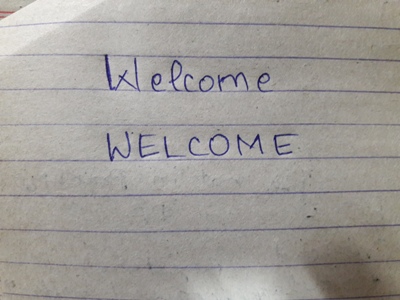 Welcome
WELCOME